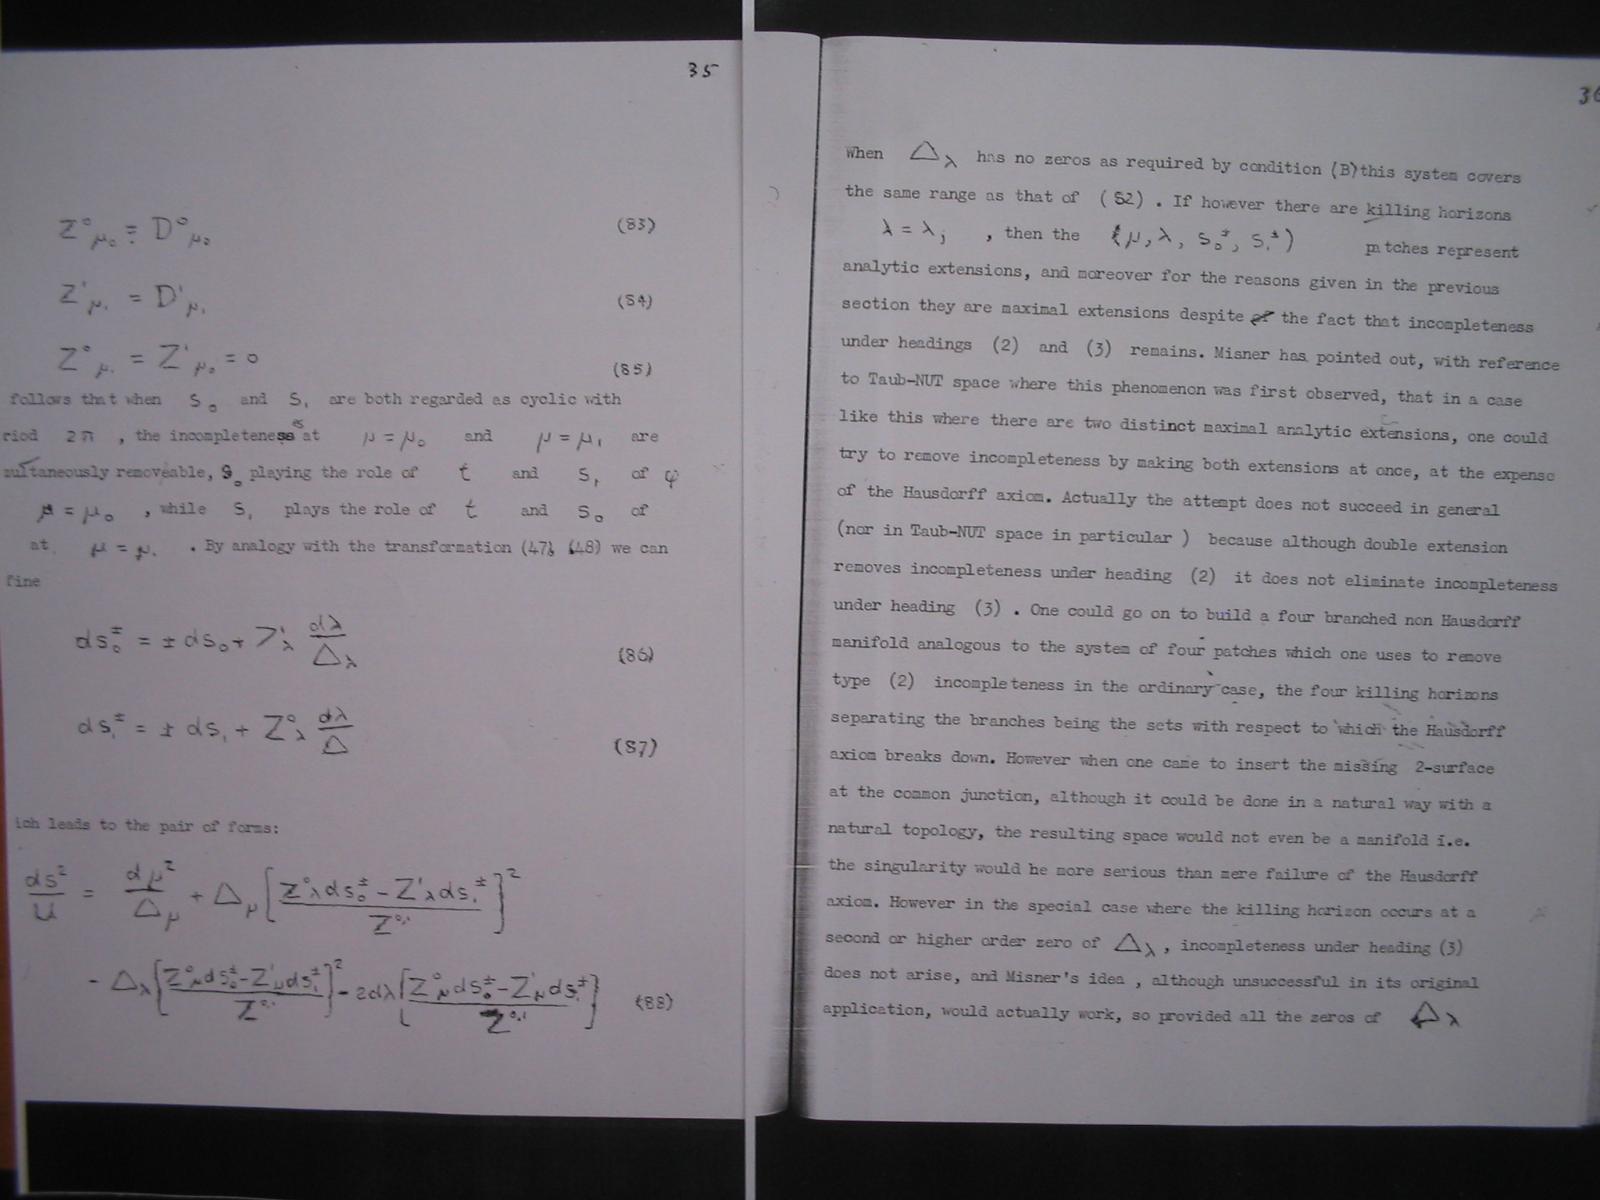 35
Z°μ₀ = D°μ₀ (83)
Z'μ₁ = D'μ₁ (84)
Z°μ₁ = Z'μ₀ = 0 (85)
follows that when S₀ and S₁ are both regarded as cyclic with
riod 2π , the incompleteness at μ = μ₀ and μ = μ₁ are
multaneously removeable, S₀ playing the role of t and S₁ of φ
μ = μ₀ , while S₁ plays the role of t and S₀ of
at μ = μ₁ . By analogy with the transformation (47), (48) we can
fine
ds₀± = ± ds₀ + Z'λ dλ/Δλ (86)
ds₁± = ± ds₁ + Z°λ dλ/Δ (87)
ich leads to the pair of forms:
ds²/U = dμ²/Δμ + Δμ [(Z°λ ds₀± − Z'λ ds₁±)/Z⁰'¹]²
- Δλ [(Z°μ ds₀± − Z'μ ds₁±)/Z⁰'¹]² − 2dλ [(Z°μ ds₀± − Z'μ ds₁±)/Z⁰'¹] (88)
36
When Δλ has no zeros as required by condition (B)this system covers
the same range as that of (82) . If however there are killing horizons
λ = λj , then the {μ, λ, s₀±, s₁±) patches represent
analytic extensions, and moreover for the reasons given in the previous
section they are maximal extensions despite of the fact that incompleteness
under headings (2) and (3) remains. Misner has pointed out, with reference
to Taub-NUT space where this phenomenon was first observed, that in a case
like this where there are two distinct maximal analytic extensions, one could
try to remove incompleteness by making both extensions at once, at the expense
of the Hausdorff axiom. Actually the attempt does not succeed in general
(nor in Taub-NUT space in particular ) because although double extension
removes incompleteness under heading (2) it does not eliminate incompleteness
under heading (3) . One could go on to build a four branched non Hausdorff
manifold analogous to the system of four patches which one uses to remove
type (2) incompleteness in the ordinary case, the four killing horizons
separating the branches being the sets with respect to which the Hausdorff
axiom breaks down. However when one came to insert the missing 2-surface
at the common junction, although it could be done in a natural way with a
natural topology, the resulting space would not even be a manifold i.e.
the singularity would be more serious than mere failure of the Hausdorff
axiom. However in the special case where the killing horizon occurs at a
second or higher order zero of Δλ , incompleteness under heading (3)
does not arise, and Misner's idea , although unsuccessful in its original
application, would actually work, so provided all the zeros of Δλ